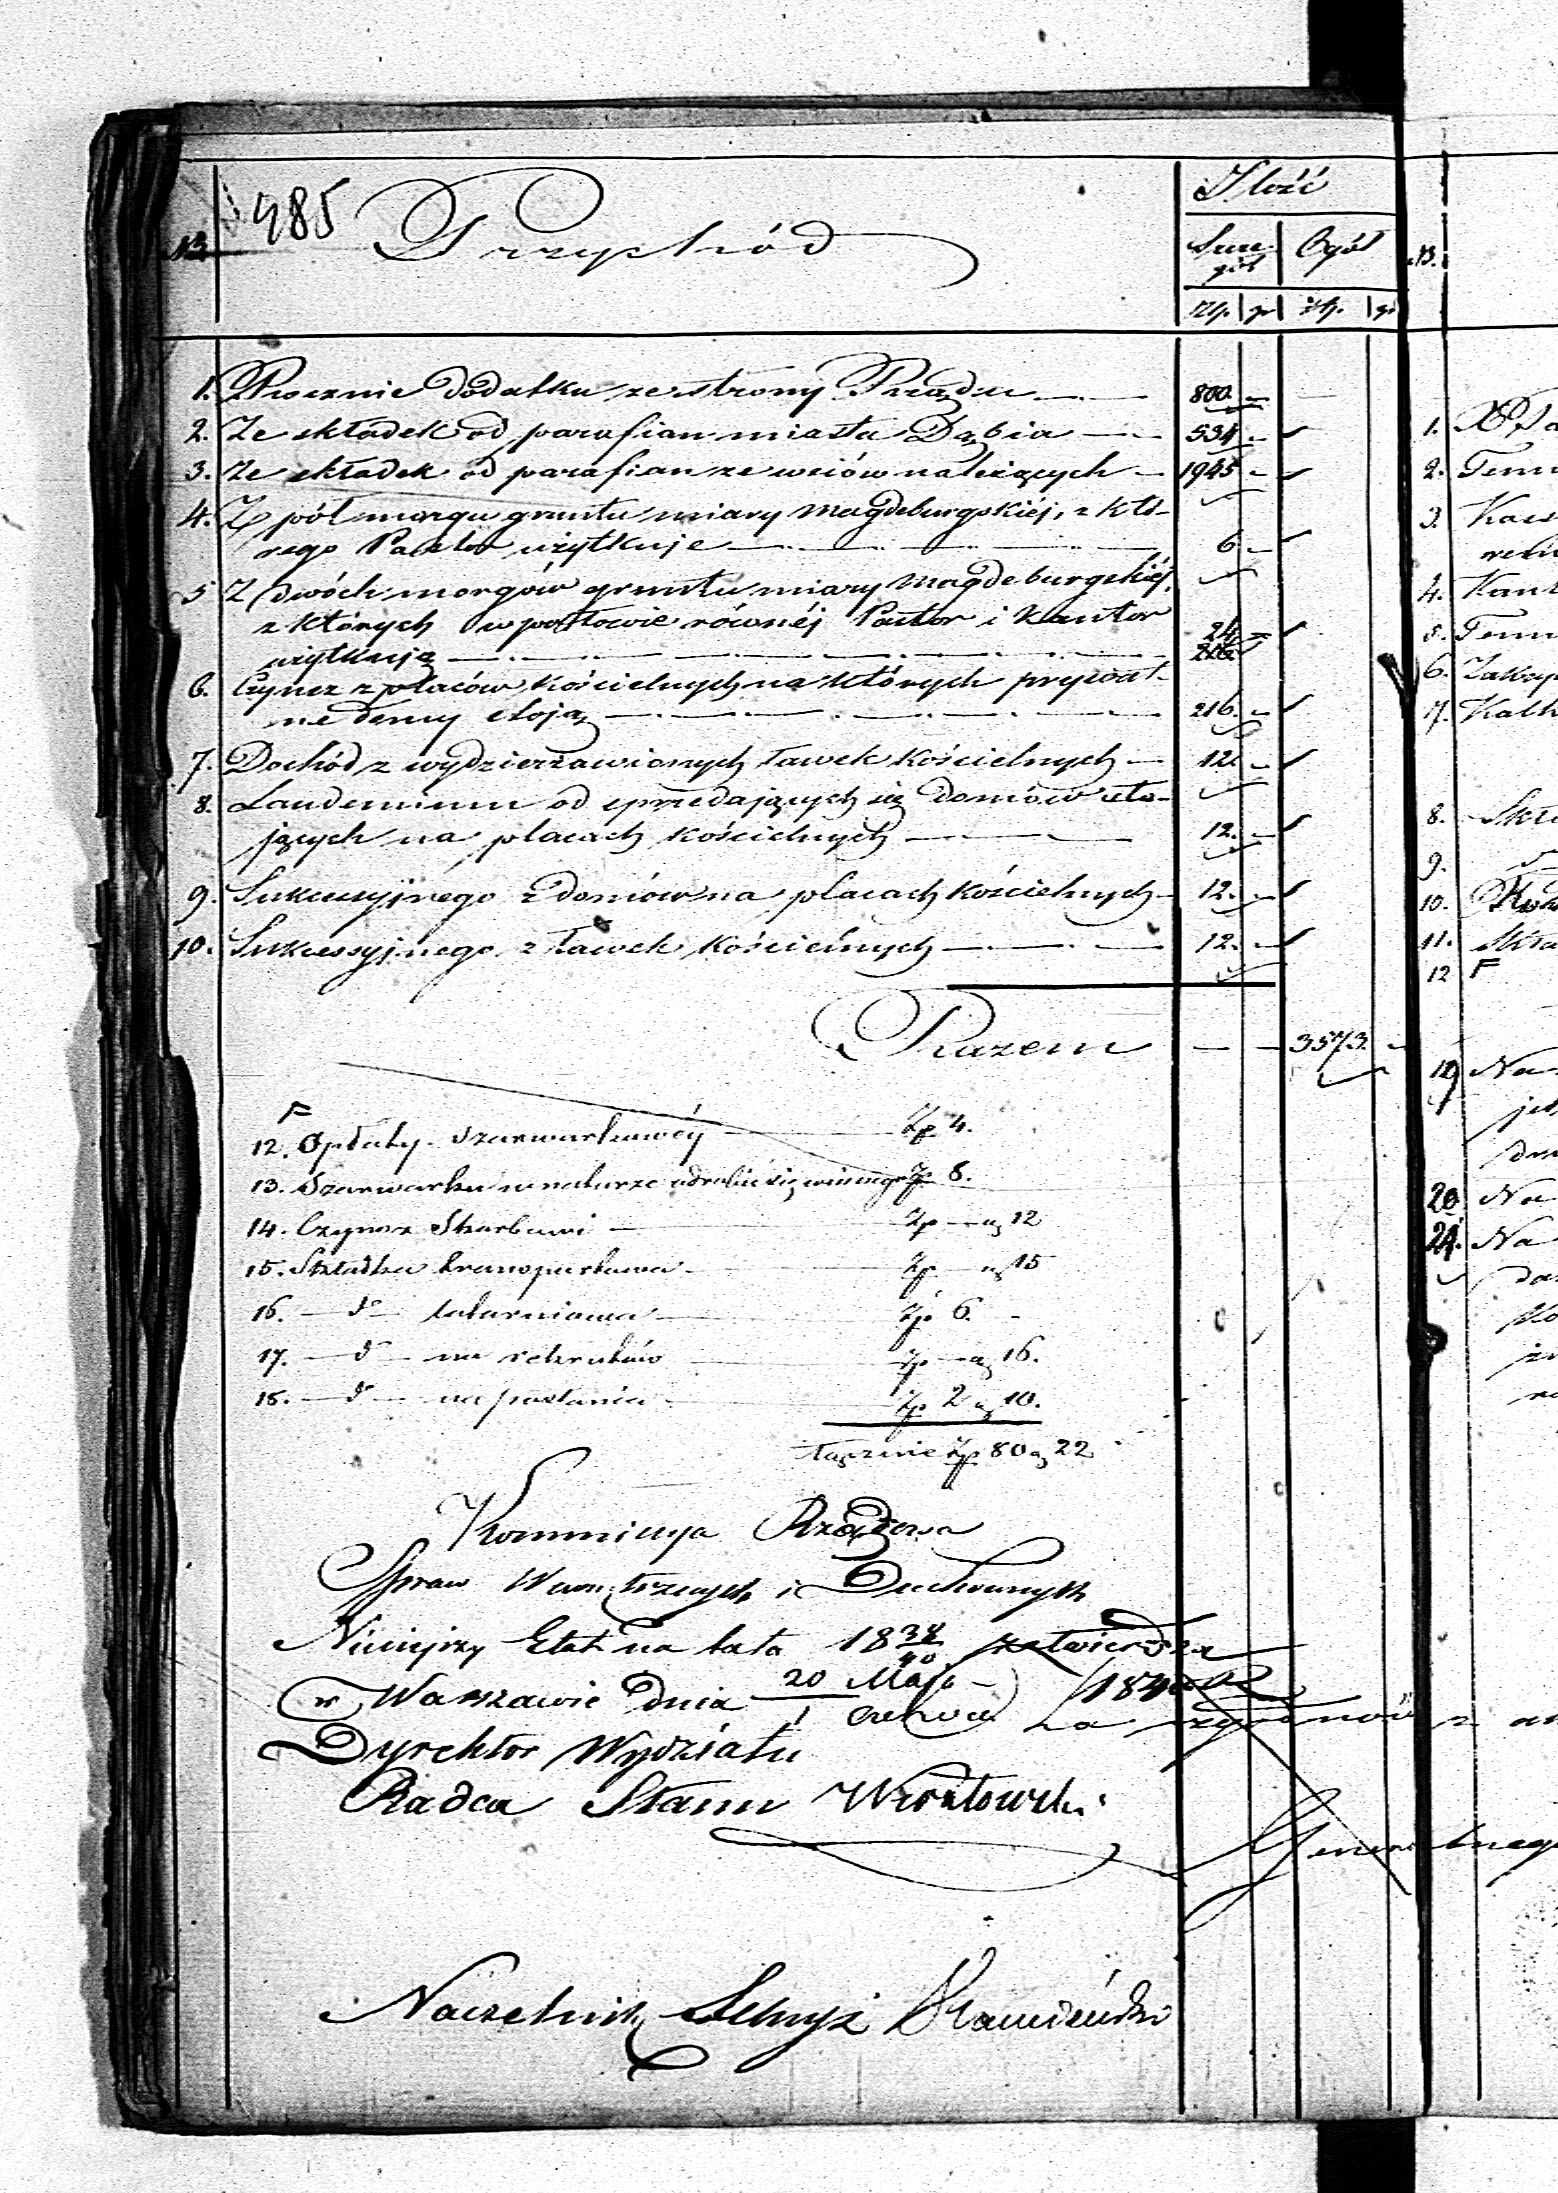 485
№ Przychód
Ilość
Szcze- Ogół
gół
Złp. gr Złp. gr
1. Rocznie dodatku ze strony Rządu 800. —
2. Ze składek od parafian miasta Dąbia 534 —
3. Ze składek od parafian ze wsiów należących 1945 —
4. Z pół morga gruntu miary Magdeburgskiéj, z któ-
rego Pastor użytkuje 6 —
5 Z dwóch morgów gruntu miary Magdeburgskiéj,
z których w połowie równéj Pastor i Kantor
użytkują 24 —
6. Czynsz z placów kościelnych na których prywat-
ne domy stoją 216. —
7. Dochód z wydzierżawionych ławek kościelnych 12. —
8. Laudemium od sprzedających się domów sto-
jących na placach kościelnych 12. —
9. Sukcessyjnego z domów na placach kościelnych 12. —
10. Sukcessyjnego z ławek kościelnych 12. —
Razem — — 3573. —
F
12. Opłaty Szarwarkowéj Zp 4.
13. Szarwarku w naturze odrobić się winnego Zp 8.
14. Czynsz Skarbowi — Zp — g 12
15. Składka transportowa Zp — g 15
16. — d° — latarniowa Zp 6. —
17. — d° — na rekrutów Zp — g 16.
18. — d° — na posłania Zp 2 g 10.
Łącznie Zp 80 g 22
Kommissya Rządowa
Spraw Wewnętrznych i Duchownych
Niniejszy Etat na lata 18 38/40 zatwierdza
w Warszawie dnia 20 Maja / 1 Czerwca 1840 R
Za zgodność z
Dyrektor Wydziału
Radca Stanu
Naczelnik Sekcyi